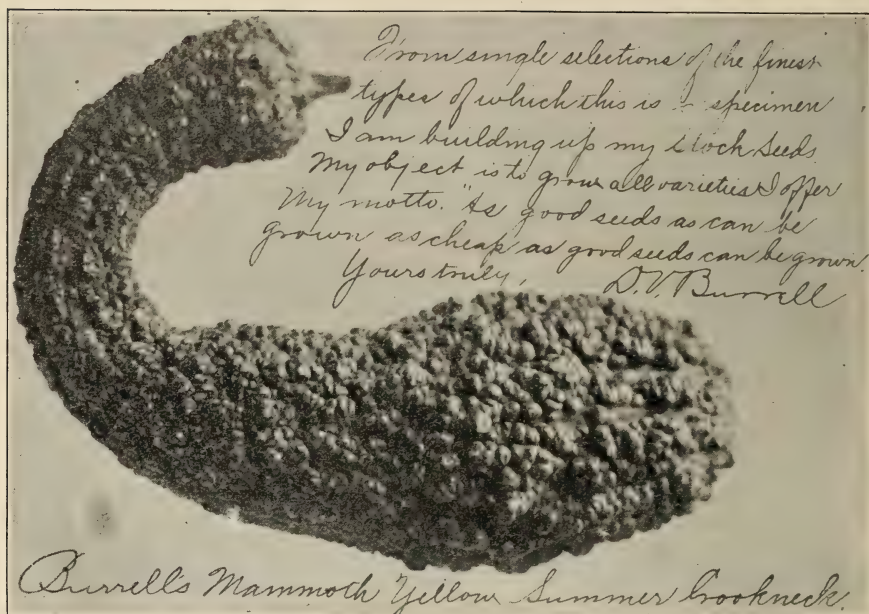 From single selections of the finest
types of which this is a specimen
I am building up my stock seeds.
My object is to grow all varieties I offer
My motto. "As good seeds as can be
grown as cheap as good seeds can be grown.
Yours truly, D.V. Burrell
Burrell's Mammoth Yellow Summer Crookneck.